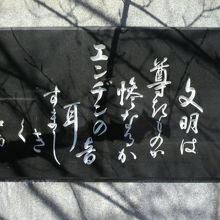 文明は
尊きものか
惨なるか
エンヂンの音
耳
すまし
きく